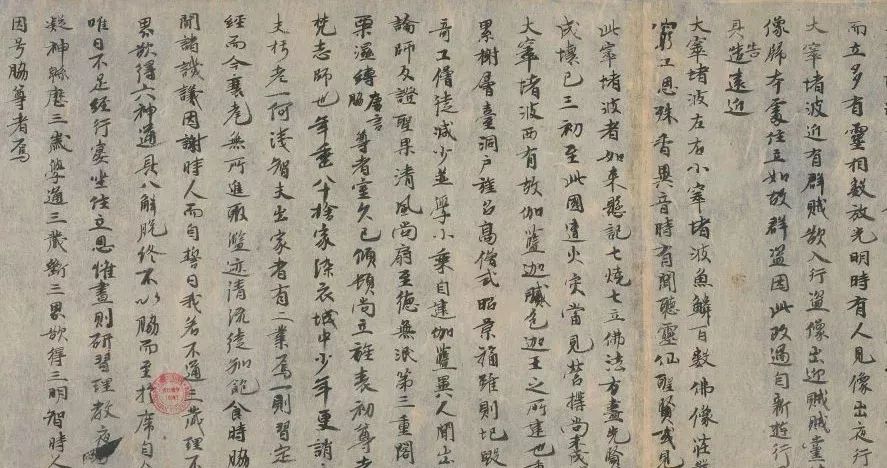 而立多有靈相數放光明時有人見像出夜行
大窣堵波近有群賊欲入行盜像出迎賊賊黨
像歸本處住立如故群盜因此改過自新遊行
具告遠近
大窣堵波左右小窣堵波魚鱗百數佛像莊
窮工思殊香異音時有聞聽靈仙聖賢或見
此窣堵波者如來懸記七燒七立佛法方盡先賢
成壞已三初至此國遭火灾當見營搆尚未成
大窣堵波西有故伽藍迦膩色迦王之所建也重
累榭層臺洞戶旌召高僧式昭景福雖則圮毀
奇工僧徒減少並學小乘自建伽藍異人間出
論師及證聖果清風尚扇至德無泯第三重閣
栗濕縛唐言脇尊者室久已傾頓尚立旌表初尊者
梵志師也年垂八十捨家染衣城中少年更誚
夫朽老一何淺智夫出家者有二業焉一則習定
經而今衰老無所進取濫迹清流徒知飽食時脇
聞諸譏議因謝時人而自誓曰我若不通三藏理不
界欲得六神通具八解脫終不以脇而至於席自
唯日不足經行宴坐住立思惟晝則研習理教夜
凝神綿歷三歲學通三藏斷三界欲得三明智時人
因号脇尊者焉